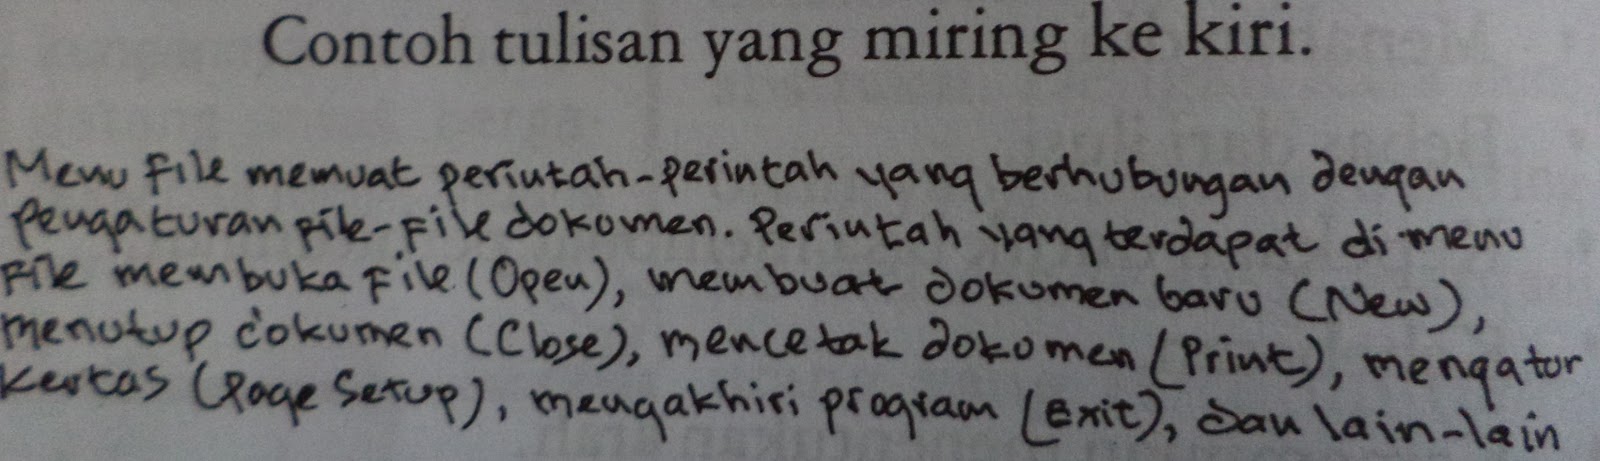 Contoh tulisan yang miring ke kiri.
Menu File memuat perintah-perintah yang berhubungan dengan
pengaturan file-file dokumen. Perintah yang terdapat di menu
File membuka File (Open), membuat dokumen baru (New),
menutup dokumen (Close), mencetak dokumen (Print), mengatur
kertas (Page Setup), mengakhiri program (Exit), dan lain-lain